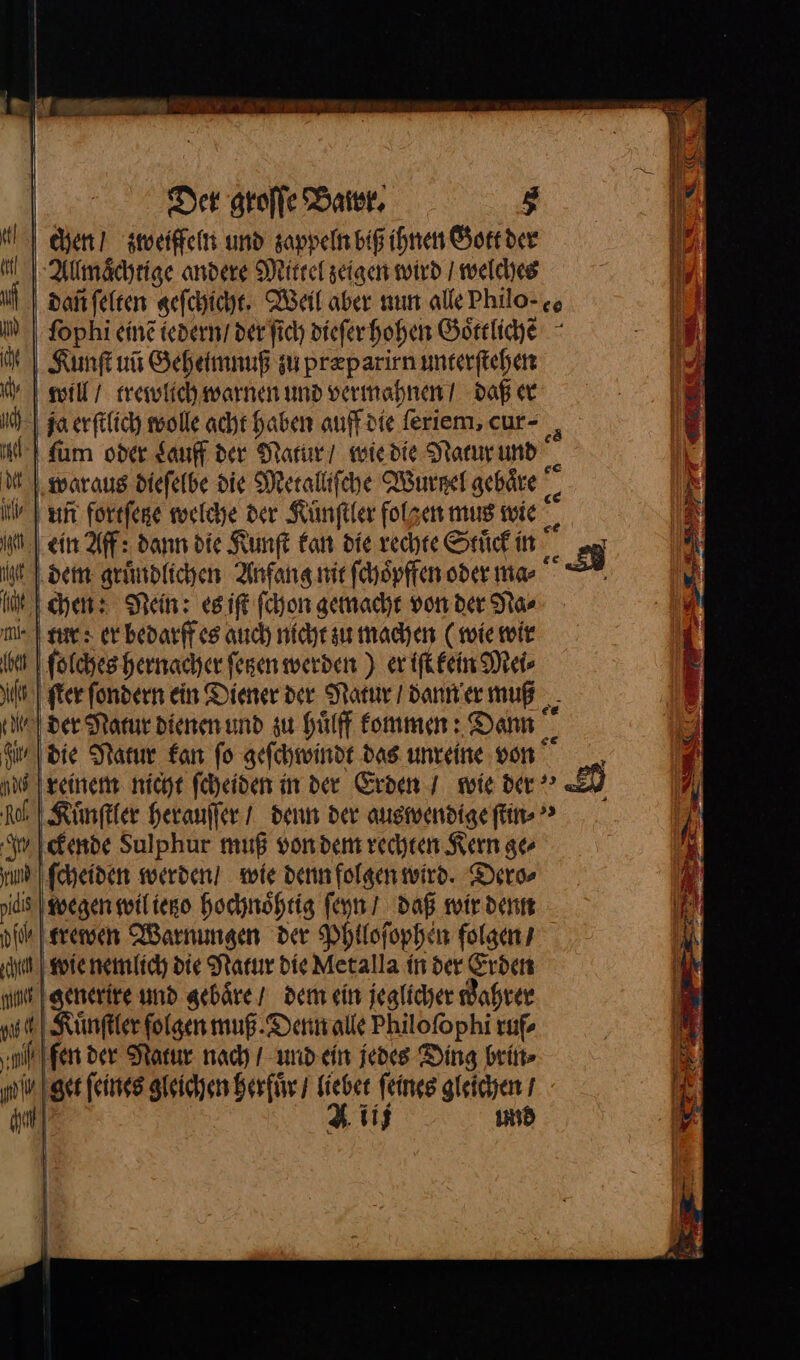 Der groſſe Bawr. 5
chen / zweiffeln und zappeln biß ihnen Gott der
Allmaͤchtige andere Mittel zeigen wird / welches
dañ ſelten geſchicht. Weil aber nun alle Philo-
ſophi einē iedern / der ſich dieſer hohen Goͤttlichē
Kunſt uñ Geheimnuß zu præparirn unterſtehen
will / trewlich warnen und vermahnen / daß er
ja erſtlich wolle acht haben auff die ſeriem, cur-
ſum oder Lauff der Natur / wie die Natur und
waraus dieſelbe die Metalliſche Wurtzel gebaͤre
uñ fortſetze welche der Kuͤnſtler folgen mus wie
ein Aff: dann die Kunſt kan die rechte Stuͤck in
dem gruͤndlichen Anfang nit ſchoͤpffen oder ma-
chen: Nein: es iſt ſchon gemacht von der Na-
tur: er bedarff es auch nicht zu machen (wie wir
ſolches hernacher ſetzen werden) er iſt kein Mei-
ſter ſondern ein Diener der Natur / dann er muß
der Natur dienen und zu huͤlff kommen: Dann
die Natur kan ſo geſchwindt das unreine von
reinem nicht ſcheiden in der Erden / wie der
Kuͤnſtler herauſſer / denn der auswendige ſtin-
ckende Sulphur muß von dem rechten Kern ge-
ſcheiden werden / wie denn folgen wird. Dero-
wegen wil ietzo hochnoͤhtig ſeyn / daß wir denn
trewen Warnungen der Philoſophen folgen /
wie nemlich die Natur die Metalla in der Erden
generire und gebaͤre / dem ein jeglicher wahrer
Kuͤnſtler folgen muß. Denn alle Philoſophi ruf-
fen der Natur nach / und ein jedes Ding brin-
get ſeines gleichen herfuͤr / liebet ſeines gleichen /
A iij und